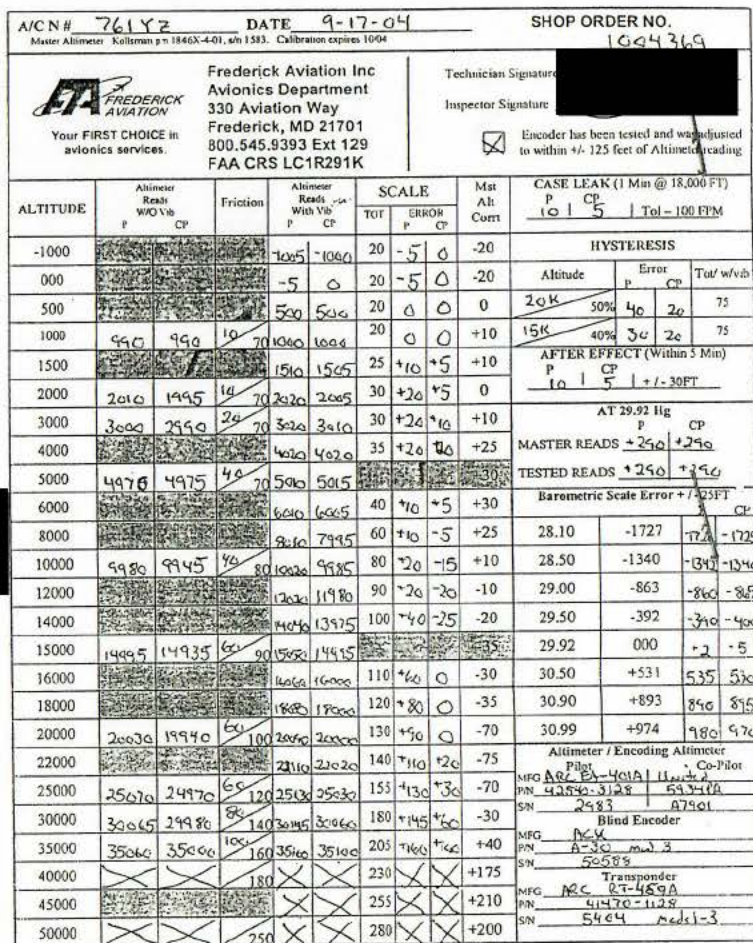 A/C N # 761YZ DATE 9-17-04 SHOP ORDER NO.
Master Altimeter Kollsman p/n 1846X-4-01, s/n 1583. Calibration expires 10/04 1004369
FREDERICK AVIATION
Your FIRST CHOICE in avionics services.
Frederick Aviation Inc
Avionics Department
330 Aviation Way
Frederick, MD 21701
800.545.9393 Ext 129
FAA CRS LC1R291K
Technician Signature
Inspector Signature
Encoder has been tested and was adjusted
to within +/- 125 feet of Altimeter reading
ALTITUDE Altimeter Reads W/O Vib P CP Friction Altimeter Reads With Vib P CP SCALE TOT ERROR P CP Mst Alt Corrt
-1000 -1005 -1000 20 -5 0 -20
000 -5 0 20 -5 0 -20
500 500 500 20 0 0 0
1000 990 990 10/70 1000 1000 20 0 0 +10
1500 1510 1505 25 +10 +5 +10
2000 2010 1995 10/70 2020 2005 30 +20 +5 0
3000 3000 2990 20/70 3020 3010 30 +20 +10 +10
4000 4020 4020 35 +20 +25
5000 4970 4975 40/70 5010 5015 30
6000 6010 6005 40 +10 +5 +30
8000 7995 60 +10 -5 +25
10000 9980 9945 40/80 10020 9985 80 +20 -15 +10
12000 12020 11980 90 +20 -20 -10
14000 14040 13975 100 +40 -25 -20
15000 14995 14935 60/90 15050 14995 35
16000 16060 16000 110 +60 0 -30
18000 18080 18000 120 +80 0 -35
20000 20030 19940 60/100 20090 20000 130 +90 0 -70
22000 22110 22020 140 +110 +20 -75
25000 25070 24970 60/120 25130 25030 155 +130 +30 -70
30000 30065 29980 80/140 30145 30060 180 +145 +60 -30
35000 35060 35000 100/160 35160 35100 205 +160 +40
40000 180 230 +175
45000 255 +210
50000 250 280 +200
CASE LEAK (1 Min @ 18,000 FT)
P CP
10 5 Tol – 100 FPM
HYSTERESIS
Altitude Error P CP Tot/ w/vib
20K 50% 40 20 75
15K 40% 30 20 75
AFTER EFFECT (Within 5 Min)
P CP
10 5 +/- 30FT
AT 29.92 Hg
P CP
MASTER READS +290 +290
TESTED READS +290 +290
Barometric Scale Error +/- 25FT
CP
28.10 -1727
28.50 -1340 -1342 -1340
29.00 -863 -860 -865
29.50 -392 -390 -400
29.92 000 +2 -5
30.50 +531 535 530
30.90 +893 890 895
30.99 +974 980 970
Altimeter / Encoding Altimeter
Pilot Co-Pilot
MFG ARC EA-401A United
P/N 42540-3128 5934PA
S/N 2983 A7901
Blind Encoder
MFG ACK
P/N A-30 mod 3
S/N 50588
Transponder
MFG ARC RT-459A
P/N 41470-1128
S/N 5404